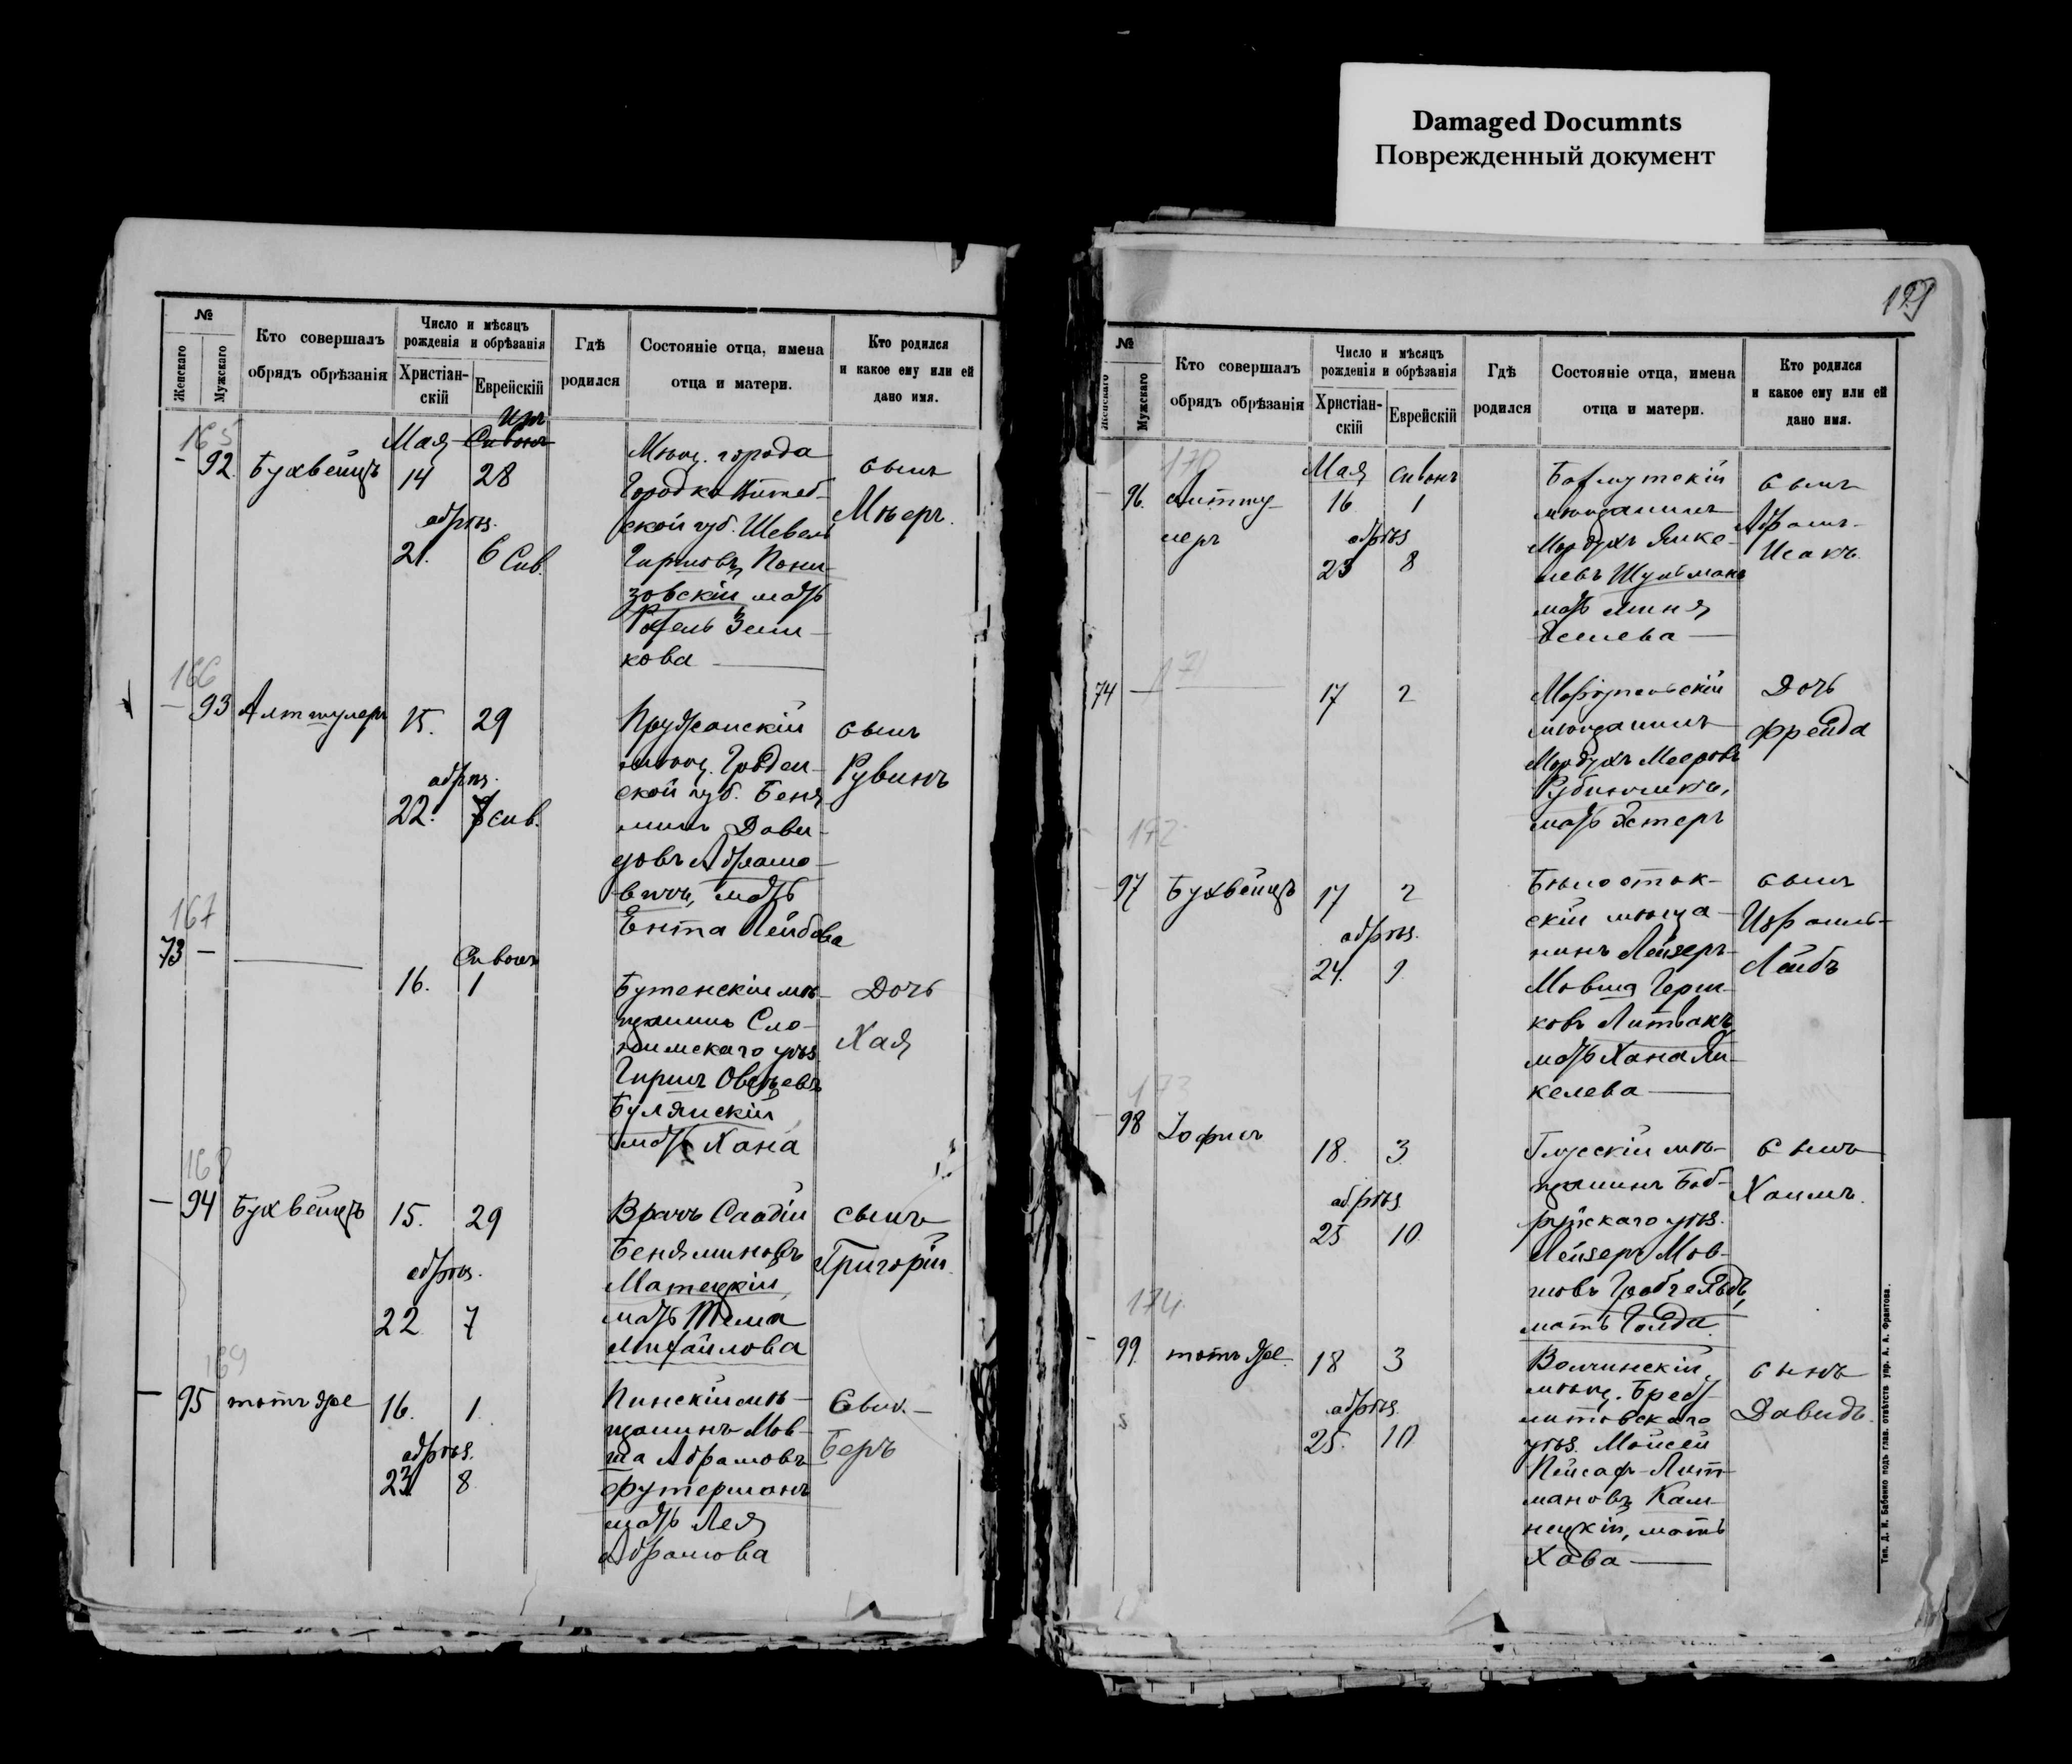 Damaged Documnts
Поврежденный документ
№
Женскаго
Мужскаго
Кто совершалъ
обрядъ обрѣзанія
Число и мѣсяцъ
рожденія и обрѣзанія
Христіан-
скій
Еврейскій
Гдѣ
родился
Состояніе отца, имена
отца и матери.
Кто родился
и какое ему или ей
дано имя.
165
Мая Сивонъ
92 Бухвейцъ 14 28
обрѣз.
21. 6 Сив.
Мѣщ. города
Городка Витеб-
ской губ. Шевель
Гиршовъ Пони-
зовскій мать
Рохель Зели-
кова
сынъ
Мѣеръ.
166
93 Алтшулеръ 15. 29
обрѣз.
22. 7 сив.
Пружанскій
мѣщ. Гроден-
ской губ. Беня
минъ Дави-
довъ Абрамо-
вичъ, мать
Ента Лейбова
сынъ
Рувинъ
167
73 —
Сивонъ
16. 1
Бутенскій мѣ-
щанинъ Сло-
нимскаго уѣз.
Гиршъ Овсѣевъ
Булянскій
мать Хана
Дочь
Хая
168
94 Бухвейцъ 15. 29
обрѣз.
22 7
Врачъ Саадій
Беняминовъ
Матецкій,
мать Тема
Михайлова
сынъ
Григорій.
169
95 тотъ же 16. 1.
обрѣз.
23 8
Пинскій мѣ-
щанинъ Мов-
ша Абрамовъ
Футерманъ
мать Лея
Абрамова
Сынъ
Беръ
№
Женскаго
Мужскаго
Кто совершалъ
обрядъ обрѣзанія
Число и мѣсяцъ
рожденія и обрѣзанія
Христіан-
скій
Еврейскій
Гдѣ
родился
Состояніе отца, имена
отца и матери.
Кто родился
и какое ему или ей
дано имя.
170
Мая Сивонъ
96. Алтшу- 16 1
леръ
обрѣз
23 8
Бахмутскій
мѣщанинъ
Мордухъ Янке-
левъ Шульманъ
мать
сынъ
Абрамъ-
Исакъ.
171
74 — 17 2
Маріупольскій
мѣщанинъ
Мордухъ Мееровъ
мать Эстеръ
Дочь
Фрейда
172
97 Бухвейцъ 17 2
обрѣз.
24. 9
Бѣлосток-
скій мѣща-
нинъ Лейзеръ-
Мовша Герш-
ковъ Литвакъ
мать Хана Ян-
келева
сынъ
Израиль-
Лейбъ
173
98 Іофинъ
18. 3
обрѣз
25 10
Глусскій мѣ-
щанинъ Боб-
руйскаго уѣз.
Лейзеръ Мов-
шовъ
мать Голда.
сынъ
Хаимъ.
174
99. тотъ же. 18 3
обрѣз.
25. 10
Волчинскій
мѣщ. Брест
литовскаго
уѣз. Мойсей
Пейсах-Лит-
мановъ Кам-
нецкій, мать
Хава
сынъ
Давидъ.
Тип. Д. И. Бабенко подъ глав. отвѣтств упр. А. А. Франтова.